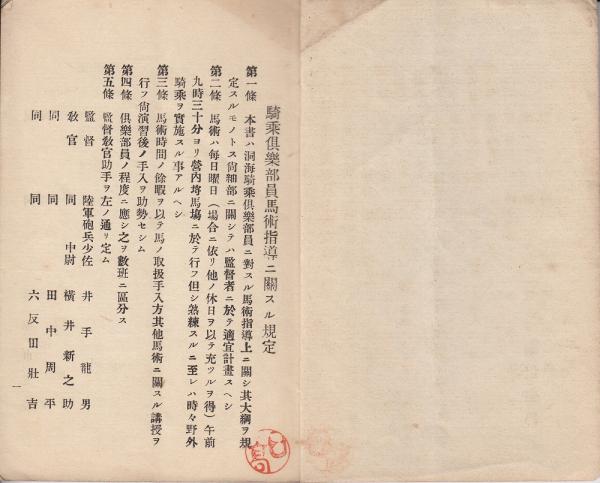 騎乘俱樂部員馬術指導ニ關スル規定
第一條 本書ハ洞海騎乘俱樂部員ニ對スル馬術指導上ニ關シ其大綱ヲ規
定スルモノトス尙細部ニ關シテハ監督者ニ於テ適宜計畫スヘシ
第二條 馬術ハ每日曜日(場合ニ依リ他ノ休日ヲ以テ充ツルヲ得)午前
九時三十分ヨリ營內埒馬場ニ於テ行フ但シ熟練スルニ至レハ時々野外
騎乘ヲ實施スル事アルヘシ
第三條 馬術時間ノ餘暇ヲ以テ馬ノ取扱手入方其他馬術ニ關スル講授ヲ
行フ尙演習後ノ手入ヲ助勢セシム
第四條 俱樂部員ノ程度ニ應シ之ヲ數班ニ區分ス
第五條 監督敎官助手ヲ左ノ通リ定ム
監督 陸軍砲兵少佐 井手龍男
敎官 同 中尉 橫井新之助
同 同 田中周平
同 同 六反田壯吉
一